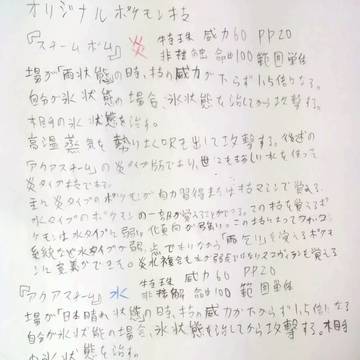 オリジナルポケモン技
『スチームボム』炎 特殊 威力60 PP20
非接触 命中100 範囲単体
場が「雨状態」の時、技の威力が下がらず1.5倍になる。
自分が氷状態の場合、氷状態を治してから攻撃する。
相手の氷状態を治す。
高温蒸気を勢いよく吹き出して攻撃する。後述の
「アクアスチーム」の炎タイプ版であり、世にも珍しい水を使った
炎タイプ技である。
主に炎タイプのポケモンが自力習得または技マシンで覚え、
水タイプのポケモンの一部が覚えることができる。この技を覚えるポ
ケモンは水タイプに弱い化
系統など水タイプが弱点でありながら「雨乞い」を覚えるポケモ
ンに意義ができる。炎氷複合も
『アクアスチーム』水 特殊 威力60 PP20
非接触 命中100 範囲単体
場が「日本晴れ状態」の時、技の威力が下がらず1.5倍になる
自分が氷状態の場合、氷状態を治してから攻撃する。相手
の氷状態を治す。